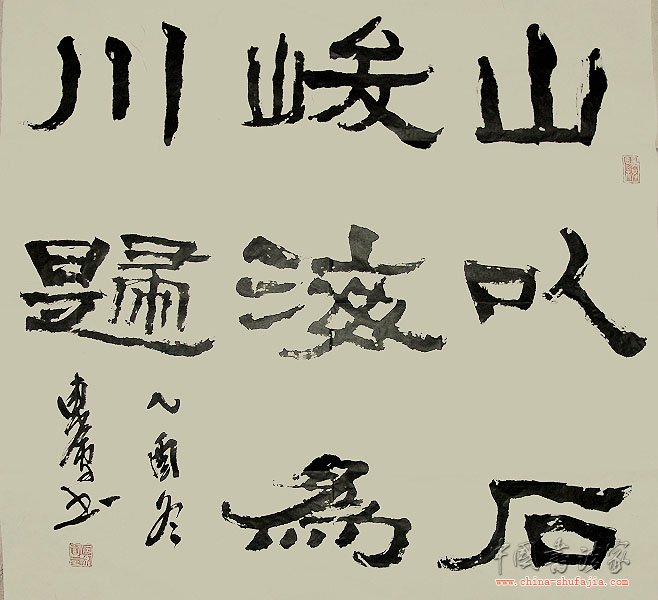 山以石
峻海為
川歸
乙酉冬
書
中国书法家
www.china-shufajia.com